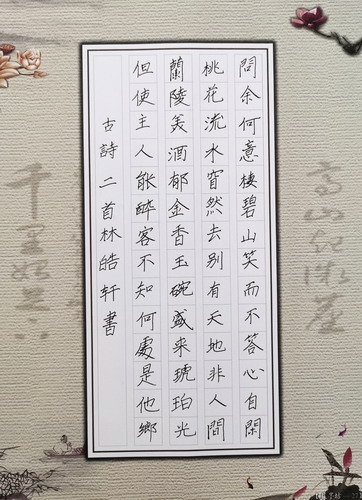 問余何意棲碧山笑而不答心自閑
桃花流水窅然去别有天地非人間
蘭陵美酒郁金香玉碗盛来琥珀光
但使主人能醉客不知何處是他鄉
古詩二首林皓轩書